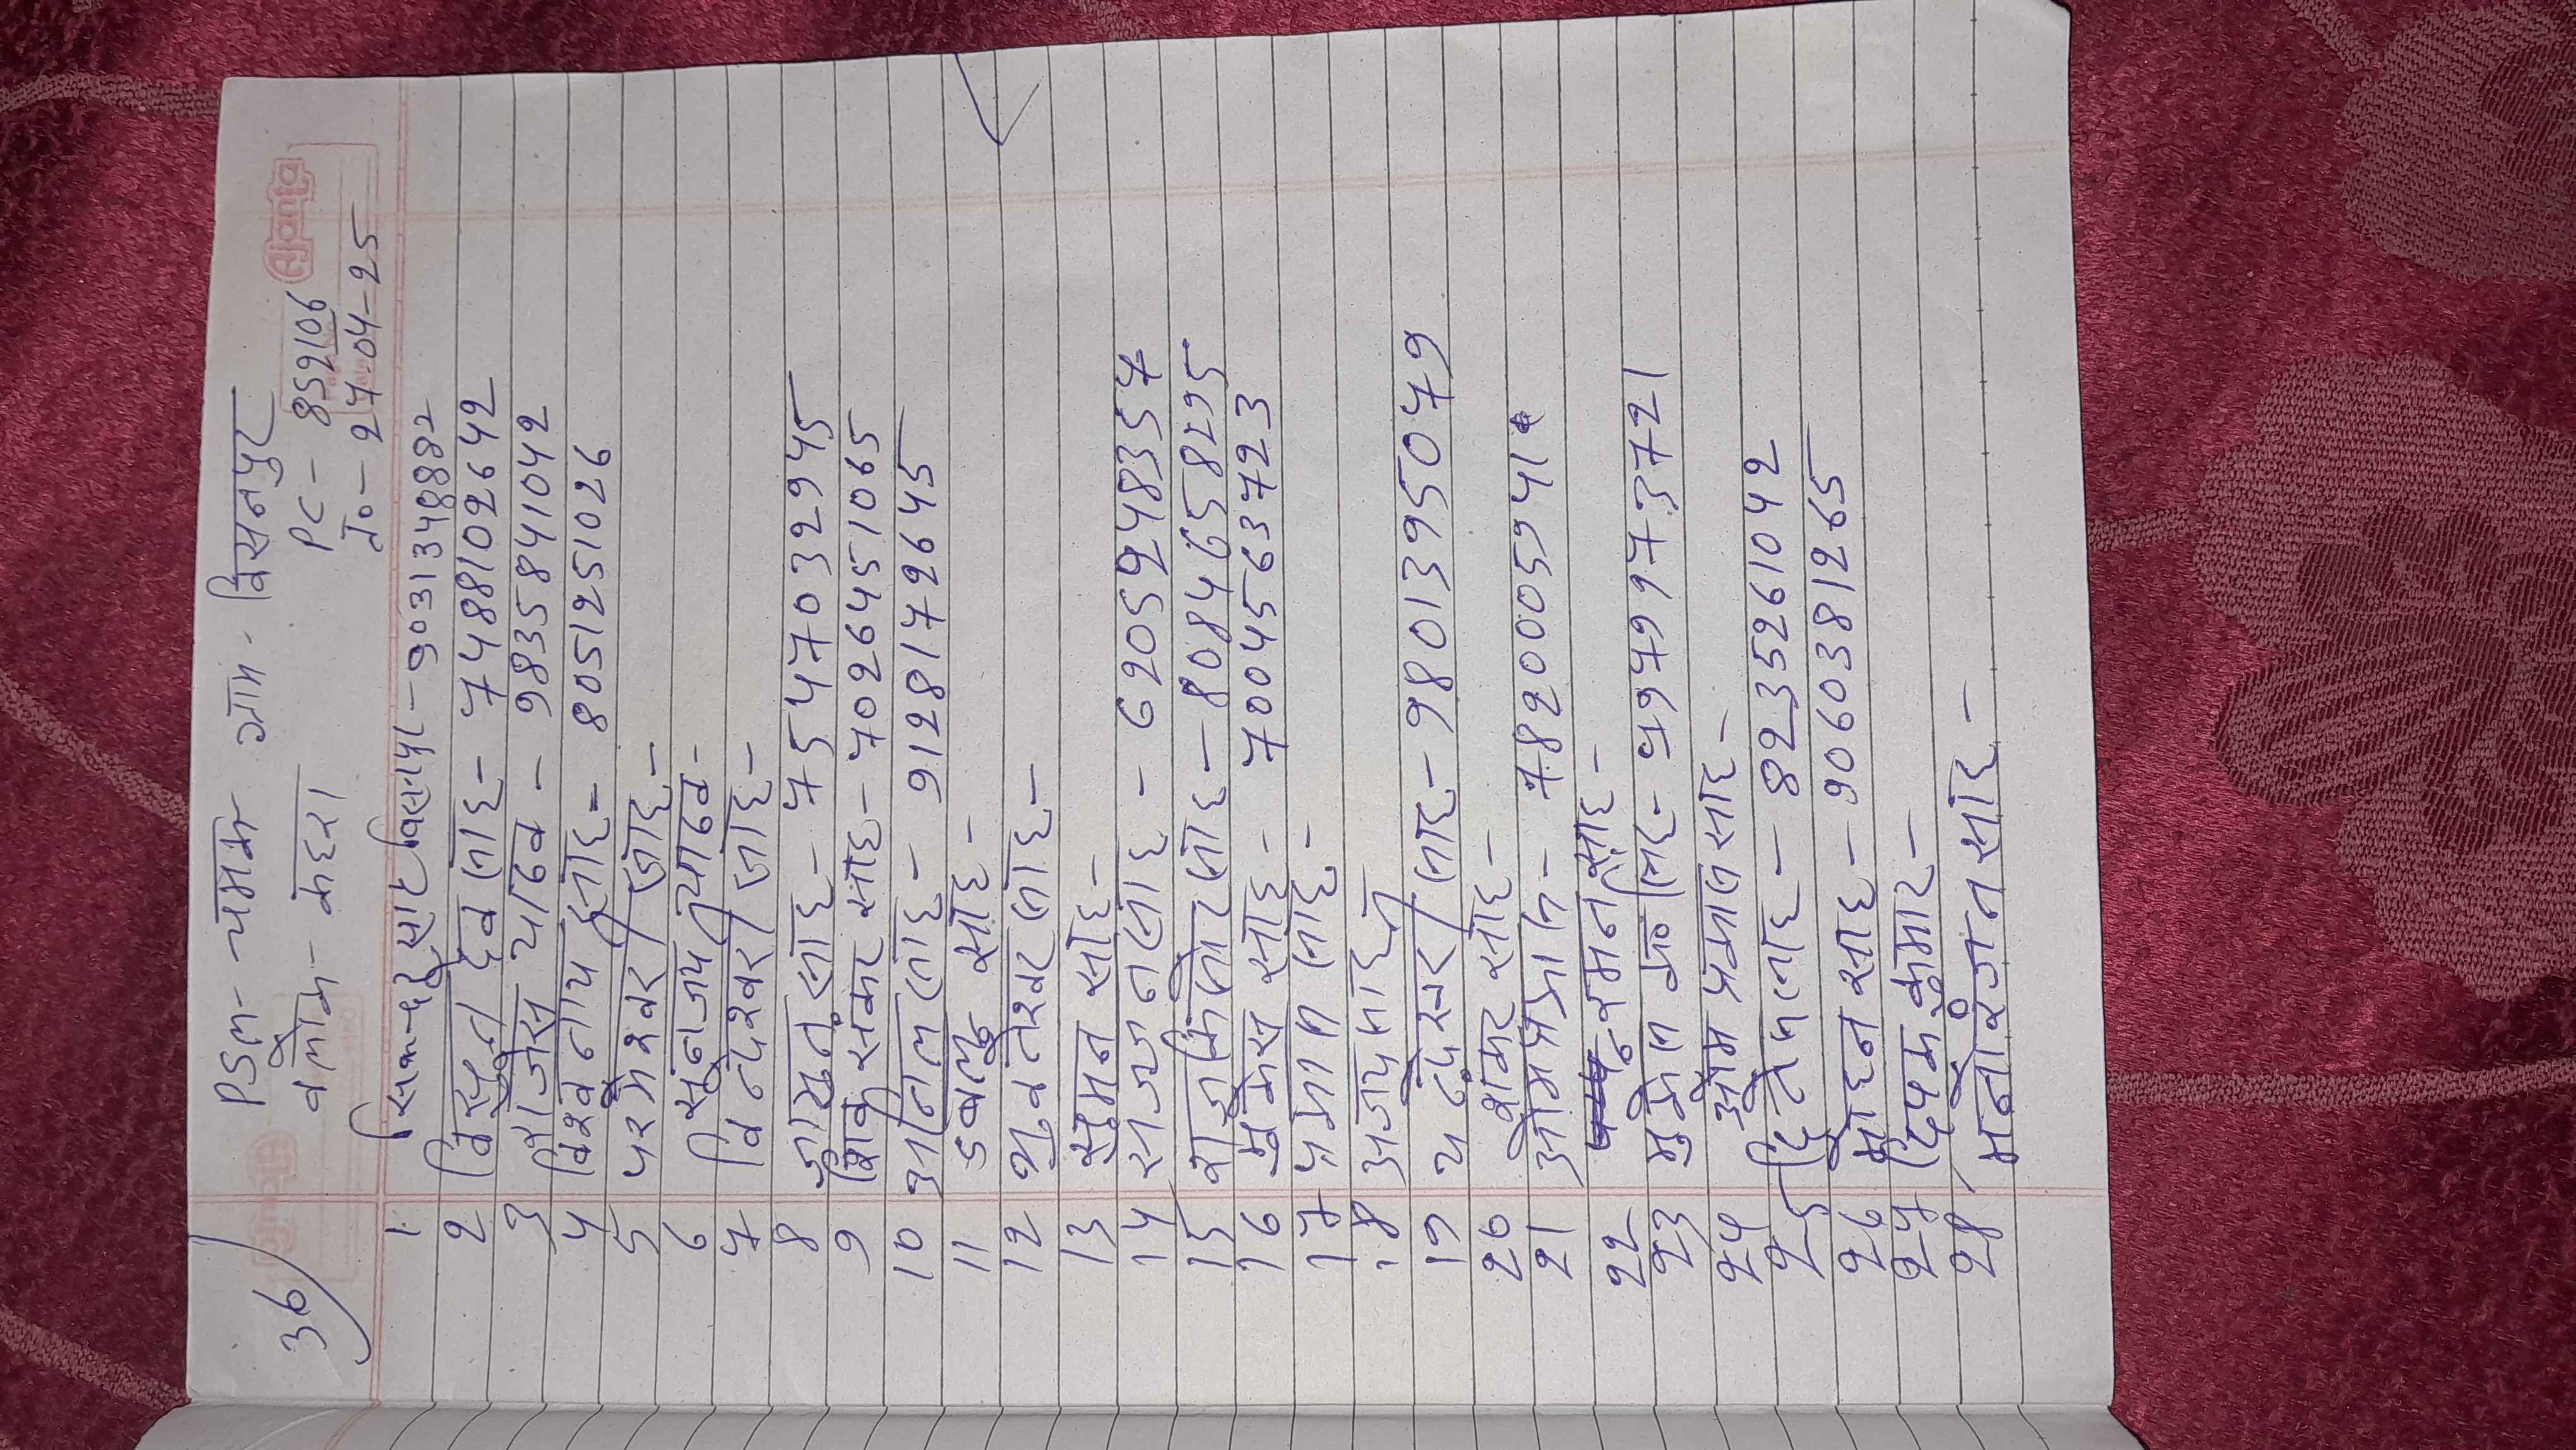 36
PSM- पंमम ग्राम - विसनपुर
वलोक - कहरा PC - 852106
ता० - 27-04-25
Ajanta
1. सिकन्दर साह विसनपुर - 9031348882
2 विसुन देव साह - 7488102642
3 विरजेस यादव - 9835841042
4 विश्वनाथ साह - 8051251026
5 परमेश्वर साह -
6 सुनजय यादव -
7 विन्देश्वर साह -
8 साह - 7547032945
9 शिव संकर साह - 7026451065
10 अनिल साह - 9128172645
11 डबलू साह -
12 भुवनेश्वर साह -
13 सुमन साह -
14 राजन साह - 6205248357
15 राज किशोर साह - 8084658295
16 मुकेस साह - 7004563723
17 प्रकाश साह -
18 अजय साह
19 चन्देस्वर साह - 9801395079
20 शंकर साह -
21 ओम प्रकाश - 7820005941
22 चमन साह -
23 साह - 9979973721
24 ओम प्रकाश साह -
25 साह - 8235261042
26 मोहन साह - 9060381265
27 दिपक कुमार -
28 मनोरंजन साह -